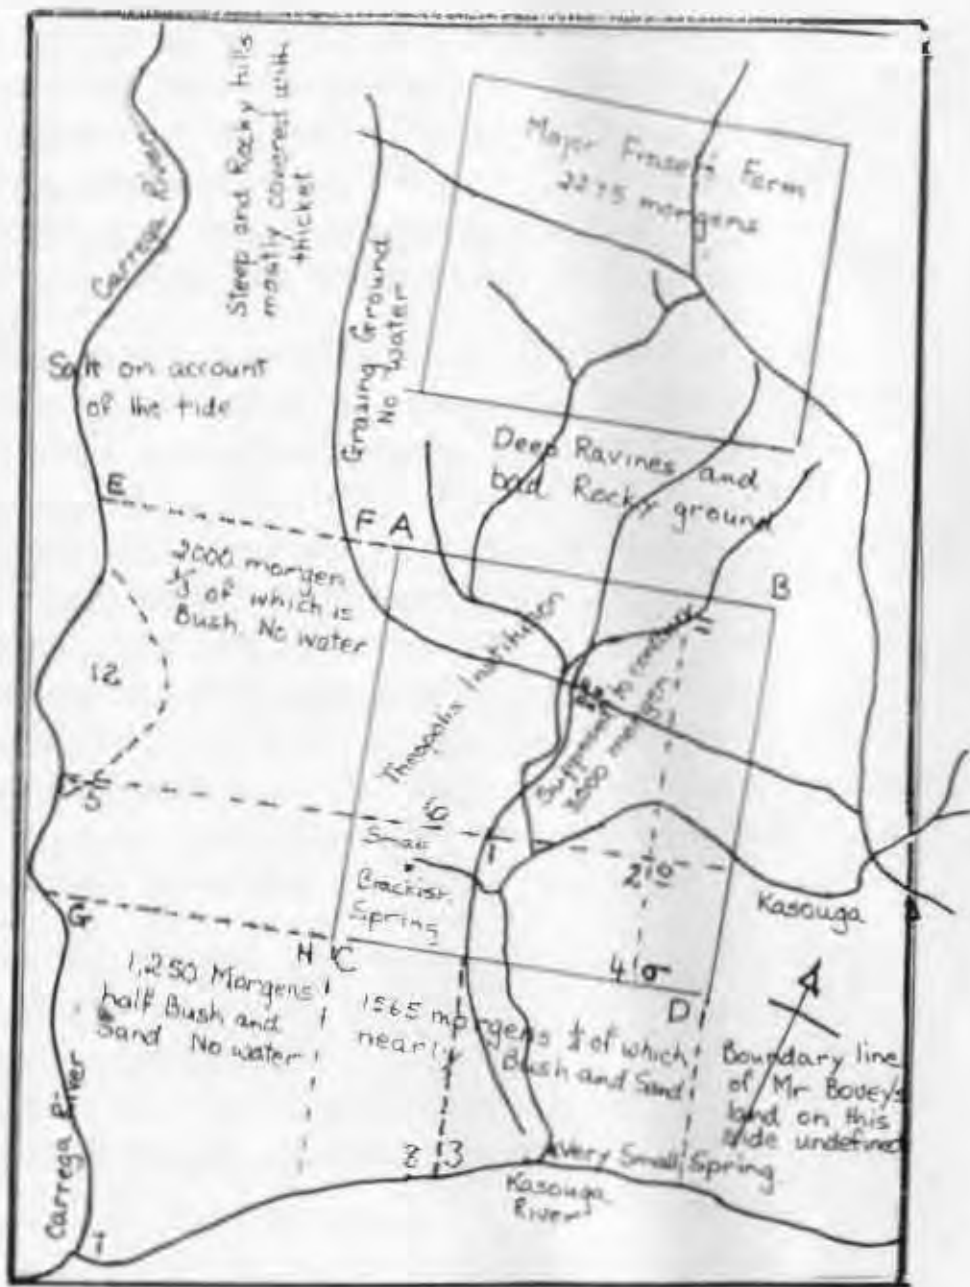 Carrega River
Steep and Rocky hills
mostly covered with
thicket
Major Fraser's Farm
2275 morgens
Grazing Ground
No water
Salt on account
of the tide
Deep Ravines and
bad Rocky ground
E
F A
B
2000 morgen
⅓ of which is
Bush. No water
12
Theopolis Institution
3000 morgen
5
6
Small
Brackish
Spring
1
2
Kasouga
G
H C
4
D
1,250 Morgens
half Bush and
Sand No water
1565 morgens ½ of which
nearly Bush and Sand
Boundary line
of Mr Bovey's
land on this
side undefined
Carrega River
8 3
A Very Small Spring
Kasouga
River